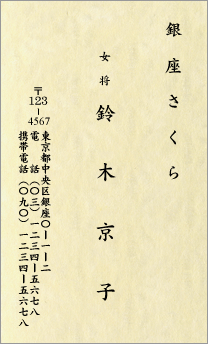 銀座さくら
女将
鈴木京子
〒123-4567
東京都中央区銀座〇ー一ー二
電話(〇三)一二三四ー五六七八
携帯電話(〇九〇)一二三四ー五六七八